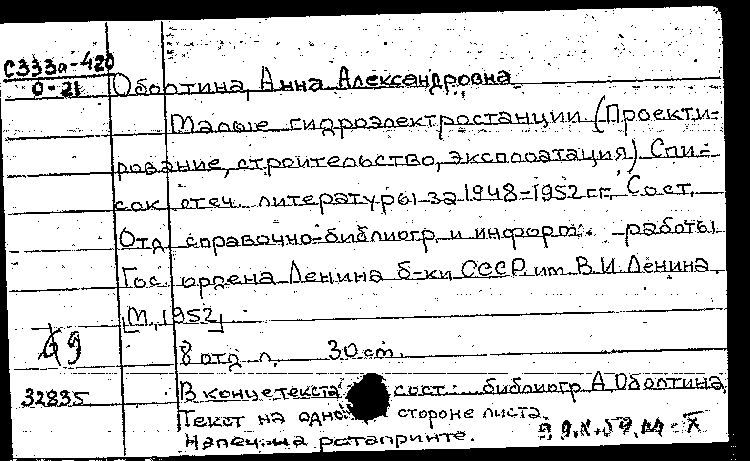 С333а-420
О-21
Оболтина, Анна Александровна
Малые гидроэлектростанции (Проекти-
рование, строительство, эксплоатация) Спи-
сок отеч. литературы за 1948-1952 гг. Сост.
Отд справочно-библиогр. и информ. работы
Гос ордена Ленина б-ки СССР им. В.И. Ленина
[М., 1952]
8 отд л. 30 cm.
32835
В конце текста сост.: библиогр А Оболтина
Текст на одной стороне листа.
Напеч. на ротапринте.